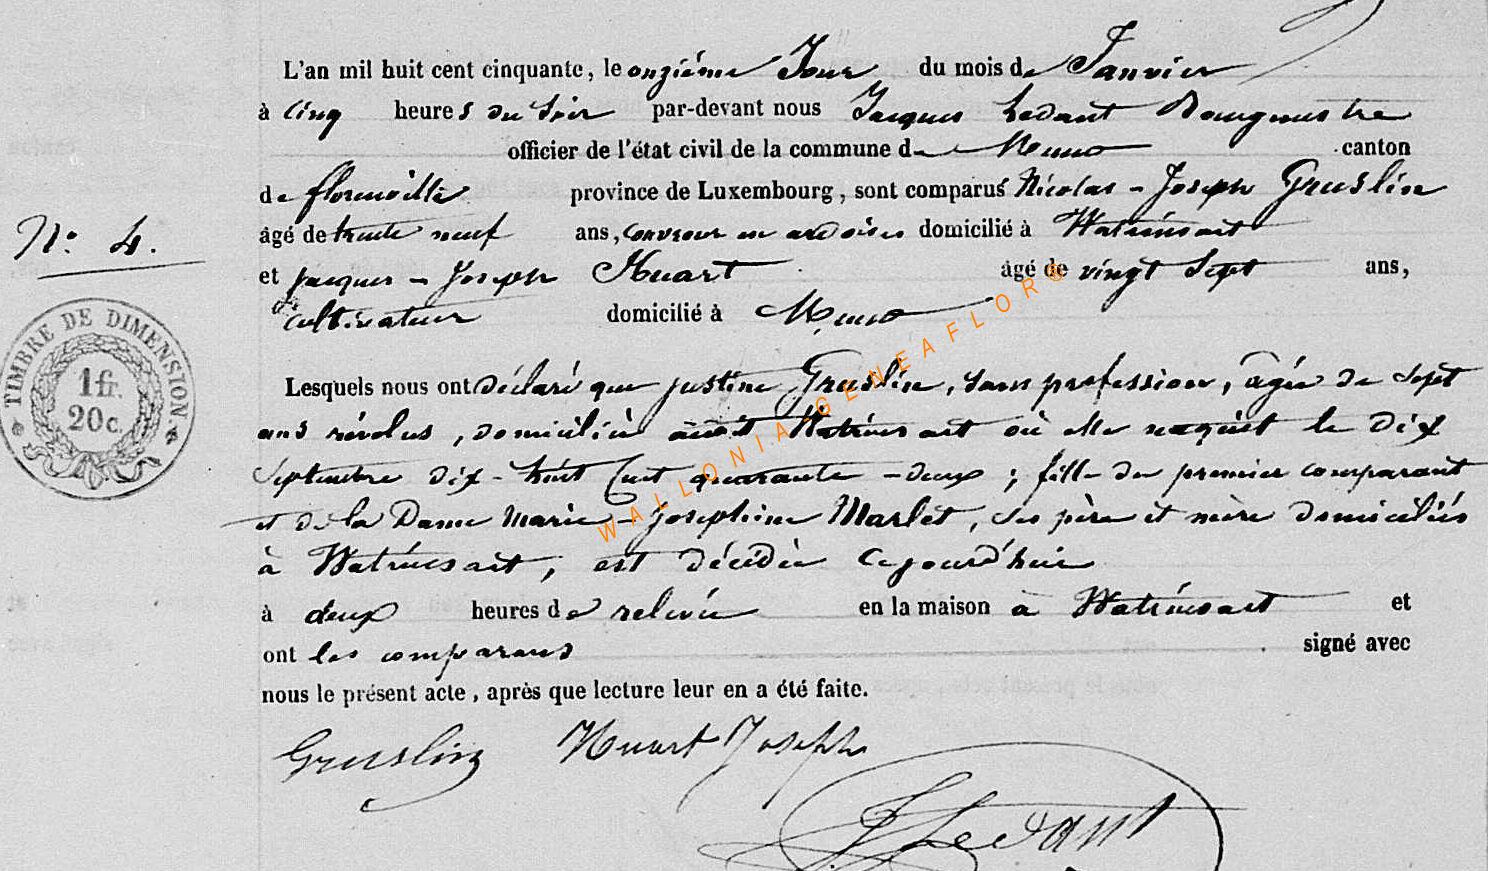 L'an mil huit cent cinquante, le onzième Jour du mois de Janvier
à cinq heures du Soir par-devant nous Jacques Ledant Bourgmestre
officier de l'état civil de la commune de Muno canton
de florenville province de Luxembourg, sont comparus Nicolas - Joseph Gruslin
N° 4.
âgé de trente neuf ans, couvreur en ardoises domicilié à Watrinsart
et Jacques - Joseph Huart âgé de vingt Sept ans,
cultivateur domicilié à Muno
TIMBRE DE DIMENSION
1 fr.
20 c.
Lesquels nous ont déclaré que Justine Gruslin, sans profession, âgée de Sept
ans révolus, domiciliée Watrinsart où elle naquit le dix
Septembre dix-huit Cent quarante-deux ; fille du premier comparant
et de la Dame Marie-Josephine Marlet, ses père et mère domiciliés
à Watrinsart, est décédée cejourd'hui
à deux heures de relevée en la maison à Watrinsart et
ont les comparans signé avec
nous le présent acte, après que lecture leur en a été faite.
Gruslin Huart Joseph
J Ledant
WALLONIA GENEAFLOR®